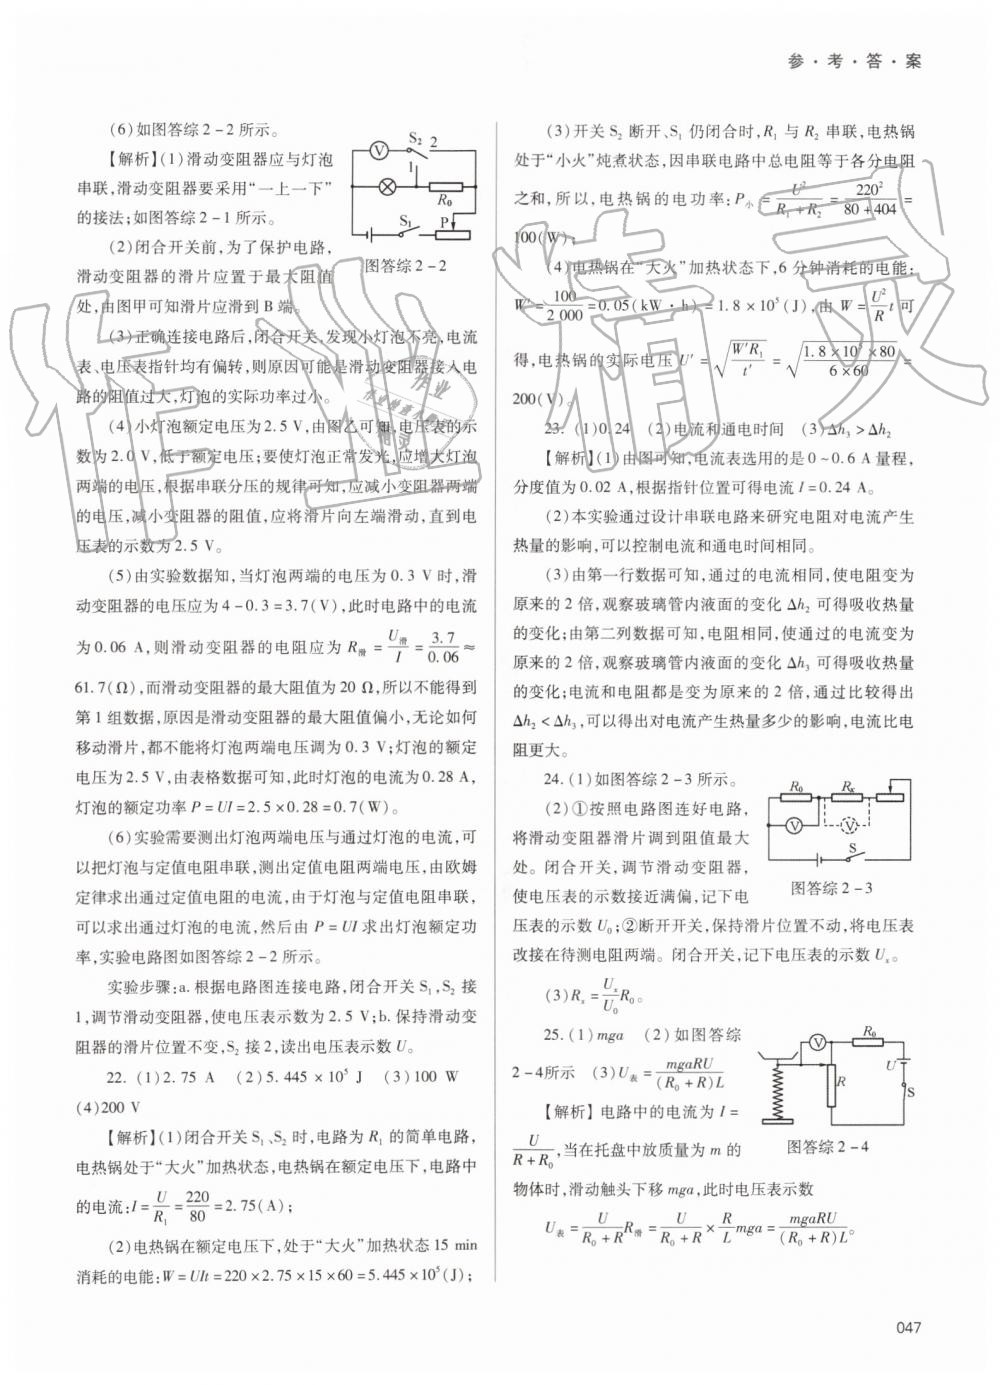 参·考·答·案
(6)如图答综2-2所示。
【解析】(1)滑动变阻器应与灯泡
串联,滑动变阻器要采用“一上一下”
的接法;如图答综2-1所示。
(2)闭合开关前,为了保护电路,
滑动变阻器的滑片应置于最大阻值
处,由图甲可知滑片应滑到B端。
V S₂ 2
1
R₀
S₁ P
图答综2-2
(3)正确连接电路后,闭合开关,发现小灯泡不亮,电流
表、电压表指针均有偏转,则原因可能是滑动变阻器接入电
路的阻值过大,灯泡的实际功率过小。
(4)小灯泡额定电压为2.5 V,由图乙可知,电压表的示
数为2.0 V,低于额定电压;要使灯泡正常发光,应增大灯泡
两端的电压,根据串联分压的规律可知,应减小变阻器两端
的电压,减小变阻器的阻值,应将滑片向左端滑动,直到电
压表的示数为2.5 V。
(5)由实验数据知,当灯泡两端的电压为0.3 V时,滑
动变阻器的电压应为4-0.3=3.7(V),此时电路中的电流
为0.06 A,则滑动变阻器的电阻应为R滑=U滑/I=3.7/0.06≈
61.7(Ω),而滑动变阻器的最大阻值为20 Ω,所以不能得到
第1组数据,原因是滑动变阻器的最大阻值偏小,无论如何
移动滑片,都不能将灯泡两端电压调为0.3 V;灯泡的额定
电压为2.5 V,由表格数据可知,此时灯泡的电流为0.28 A,
灯泡的额定功率P=UI=2.5×0.28=0.7(W)。
(6)实验需要测出灯泡两端电压与通过灯泡的电流,可
以把灯泡与定值电阻串联,测出定值电阻两端电压,由欧姆
定律求出通过定值电阻的电流,由于灯泡与定值电阻串联,
可以求出通过灯泡的电流,然后由P=UI求出灯泡额定功
率,实验电路图如图答综2-2所示。
实验步骤:a.根据电路图连接电路,闭合开关S₁,S₂接
1,调节滑动变阻器,使电压表示数为2.5 V;b.保持滑动变
阻器的滑片位置不变,S₂接2,读出电压表示数U。
22. (1)2.75 A (2)5.445×10⁵ J (3)100 W
(4)200 V
【解析】(1)闭合开关S₁、S₂时,电路为R₁的简单电路,
电热锅处于“大火”加热状态,电热锅在额定电压下,电路中
的电流:I=U/R₁=220/80=2.75(A);
(2)电热锅在额定电压下,处于“大火”加热状态15 min
消耗的电能:W=UIt=220×2.75×15×60=5.445×10⁵(J);
(3)开关S₂断开、S₁仍闭合时,R₁与R₂串联,电热锅
处于“小火”炖煮状态,因串联电路中总电阻等于各分电阻
之和,所以,电热锅的电功率:P小=U²/(R₁+R₂)=220²/(80+404)=
100(W);
(4)电热锅在“大火”加热状态下,6分钟消耗的电能:
W′=100/2 000=0.05(kW·h)=1.8×10⁵(J),由W=U²/R t可
得,电热锅的实际电压U′=√(W′R₁/t′)=√(1.8×10⁵×80/(6×60))=
200(V)。
23. (1)0.24 (2)电流和通电时间 (3)Δh₃>Δh₂
【解析】(1)由图可知,电流表选用的是0~0.6 A量程,
分度值为0.02 A,根据指针位置可得电流I=0.24 A。
(2)本实验通过设计串联电路来研究电阻对电流产生
热量的影响,可以控制电流和通电时间相同。
(3)由第一行数据可知,通过的电流相同,使电阻变为
原来的2倍,观察玻璃管内液面的变化Δh₂可得吸收热量
的变化;由第二列数据可知,电阻相同,使通过的电流变为
原来的2倍,观察玻璃管内液面的变化Δh₃可得吸收热量
的变化;电流和电阻都是变为原来的2倍,通过比较得出
Δh₂<Δh₃,可以得出对电流产生热量多少的影响,电流比电
阻更大。
24. (1)如图答综2-3所示。
(2)①按照电路图连好电路,
将滑动变阻器滑片调到阻值最大
处。闭合开关,调节滑动变阻器,
使电压表的示数接近满偏,记下电
压表的示数U₀;②断开开关,保持滑片位置不动,将电压表
改接在待测电阻两端。闭合开关,记下电压表的示数Uₓ。
R₀ Rₓ
V V
S
图答综2-3
(3)Rₓ=Uₓ/U₀ R₀。
25. (1)mga (2)如图答综
2-4所示 (3)U表=mgaRU/((R₀+R)L)
【解析】电路中的电流为I=
U/(R+R₀),当在托盘中放质量为m的
物体时,滑动触头下移mga,此时电压表示数
U表=U/(R₀+R) R滑=U/(R₀+R)×R/L mga=mgaRU/((R₀+R)L)。
V R₀
U
R S
图答综2-4
047
作业精灵